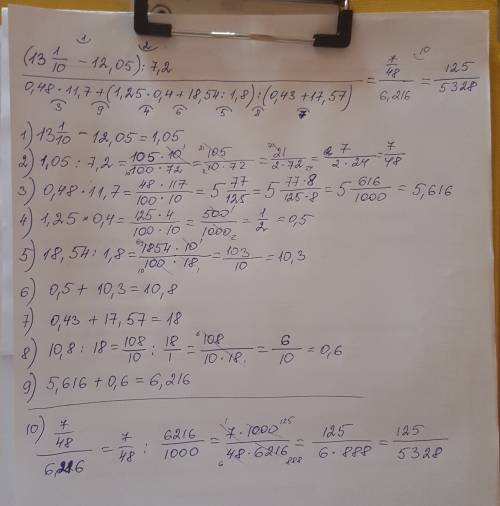 1 2 10
(13 1/10 - 12,05) : 7,2 / 0,48 · 11,7 + (1,25 · 0,4 + 18,54 : 1,8) : (0,43 + 17,57) = 7/48 / 6,216 = 125/5328
3 9 4 6 5 8 7
1) 13 1/10 - 12,05 = 1,05
2) 1,05 : 7,2 = 105 · 10 / 100 · 72 = 105 / 10 · 72 = 21 / 2 · 72 = 7 / 2 · 24 = 7/48
3) 0,48 · 11,7 = 48 · 117 / 100 · 10 = 5 77/125 = 5 77 · 8 / 125 · 8 = 5 616/1000 = 5,616
4) 1,25 × 0,4 = 125 · 4 / 100 · 10 = 500/1000 = 1/2 = 0,5
5) 18,54 : 1,8 = 1854 · 10 / 100 · 18 = 103/10 = 10,3
6) 0,5 + 10,3 = 10,8
7) 0,43 + 17,57 = 18
8) 10,8 : 18 = 108/10 : 18/1 = 108 / 10 · 18 = 6/10 = 0,6
9) 5,616 + 0,6 = 6,216
10) 7/48 / 6,216 = 7/48 : 6216/1000 = 7 · 1000 / 48 · 6216 = 125 / 6 · 888 = 125/5328